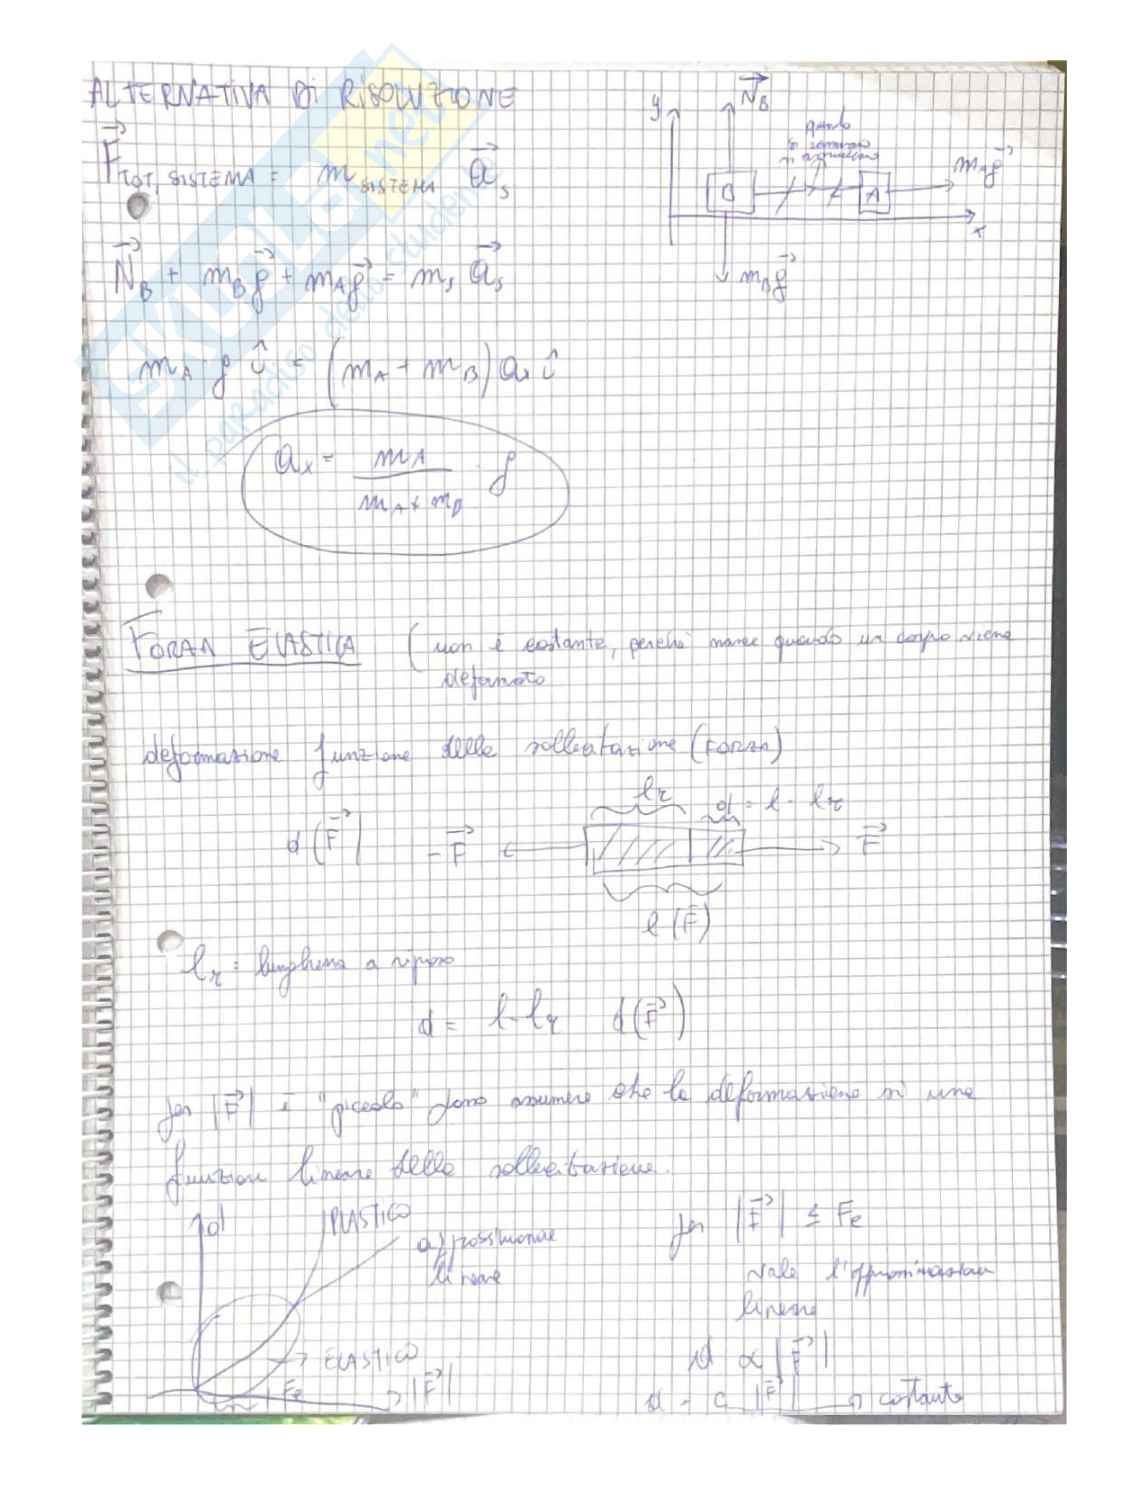 ALTERNATIVA DI RISOLUZIONE
F⃗ TOT, SISTEMA = m SISTEMA a⃗s
y N⃗B
B A mAg⃗
x
mBg⃗
N⃗B + mBg⃗ + mAg⃗ = ms a⃗s
mA g î = (mA + mB) ax î
ax = mA / (mA + mB) · g
FORZA ELASTICA (non è costante, perché nasce quando un corpo viene
deformato
deformazione funzione della sollecitazione (FORZA)
lr d = l - lr
d(F⃗) -F⃗ F⃗
l(F⃗)
lr = lunghezza a riposo
d = l - lr d(F⃗)
per |F⃗| è "piccolo" posso assumere che la deformazione sia una
funzione lineare della sollecitazione.
d PLASTICO
approssimazione
lineare
ELASTICO
Fe |F⃗|
per |F⃗| ≤ Fe
vale l'approssimazione
lineare
d ∝ |F⃗|
d = c |F⃗| → costante
SKUOLA.net
il paradiso dello studente